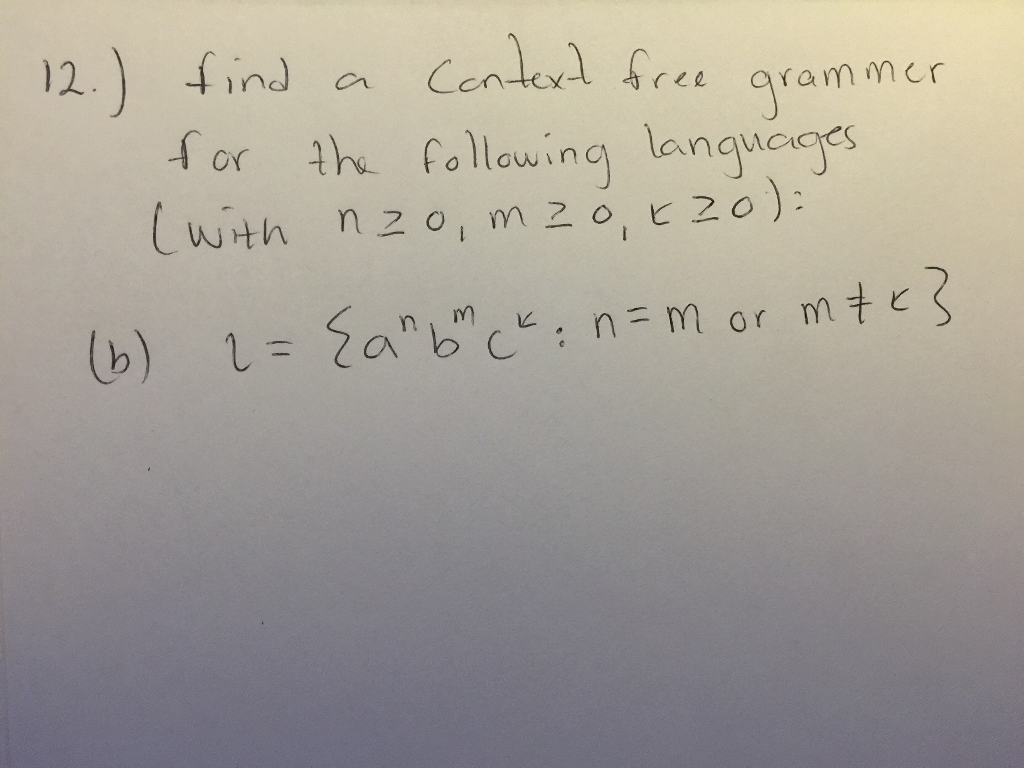 12.) find a context free grammer
for the following languages
(with n ≥ 0, m ≥ 0, k ≥ 0):
(b) L = {aⁿbᵐcᵏ : n = m or m ≠ k}